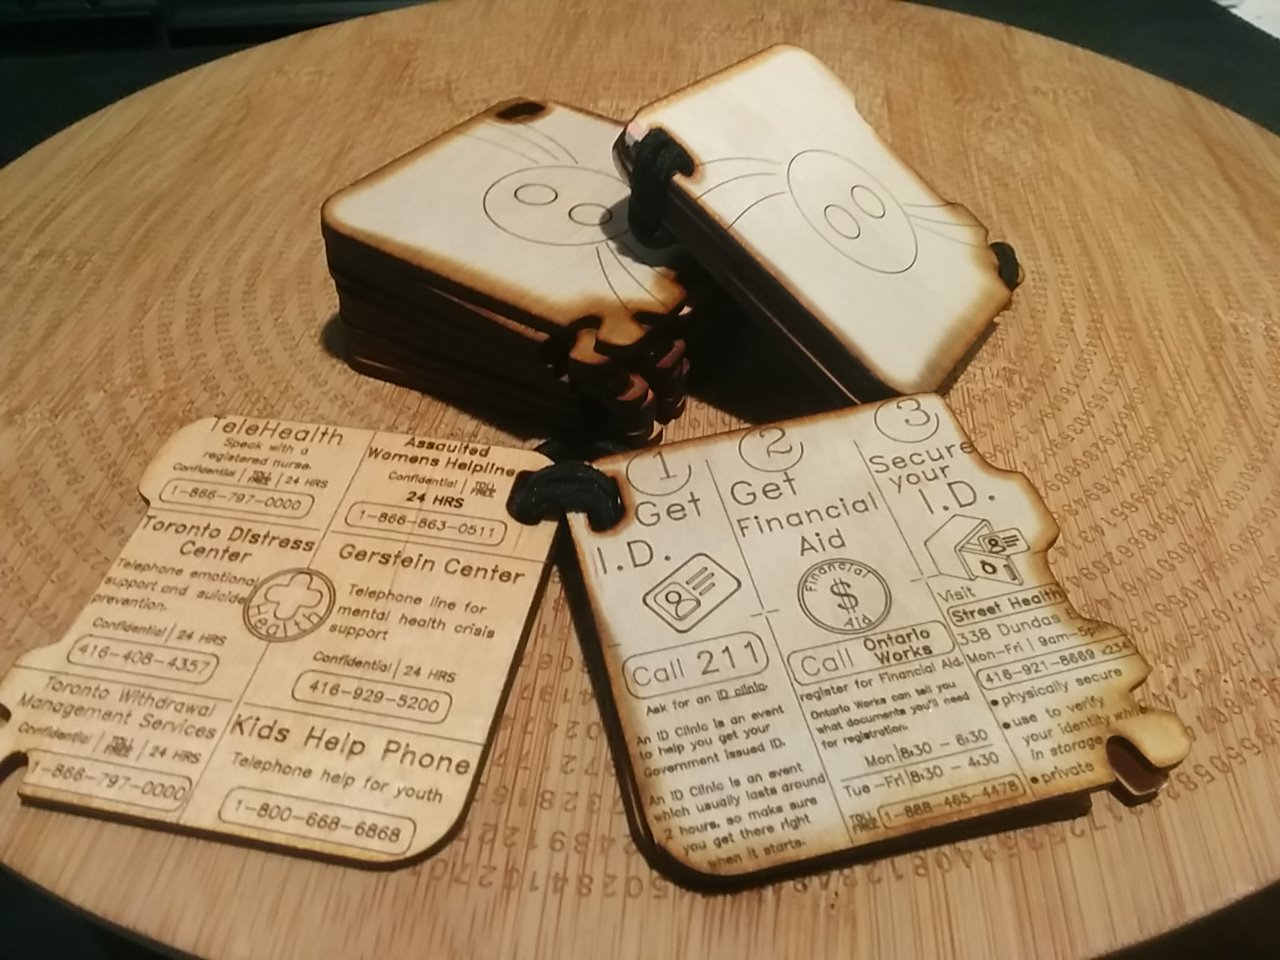 TeleHealth
Speak with a
registered nurse.
Confidential | TOLL FREE | 24 HRS
1-866-797-0000
Assaulted
Womens Helpline
Confidential | TOLL FREE
24 HRS
1-866-863-0511
Toronto Distress
Center
Telephone emotional
support and suicide
prevention.
Confidential | 24 HRS
416-408-4357
Health
Gerstein Center
Telephone line for
mental health crisis
support
Confidential | 24 HRS
416-929-5200
Toronto Withdrawal
Management Services
Confidential | TOLL FREE | 24 HRS
1-866-797-0000
Kids Help Phone
Telephone help for youth
1-800-668-6868
1
Get
I.D.
Call 211
Ask for an ID clinic.
An ID Clinic is an event
to help you get your
Government issued ID.
An ID Clinic is an event
which usually lasts around
2 hours, so make sure
you get there right
when it starts.
2
Get
Financial
Aid
Financial
$
Aid
Call Ontario
Works
register for Financial Aid.
Ontario Works can tell you
what documents you'll need
for registration.
Mon | 8:30 - 6:30
Tue -Fri | 8:30 - 4:30
TOLL FREE 1-888-465-4478
3
Secure
your
I.D.
Visit
Street Health
338 Dundas
Mon-Fri | 9am-5p
416-921-8669 x234
• physically secure
• use to verify
your identity while
in storage
• private